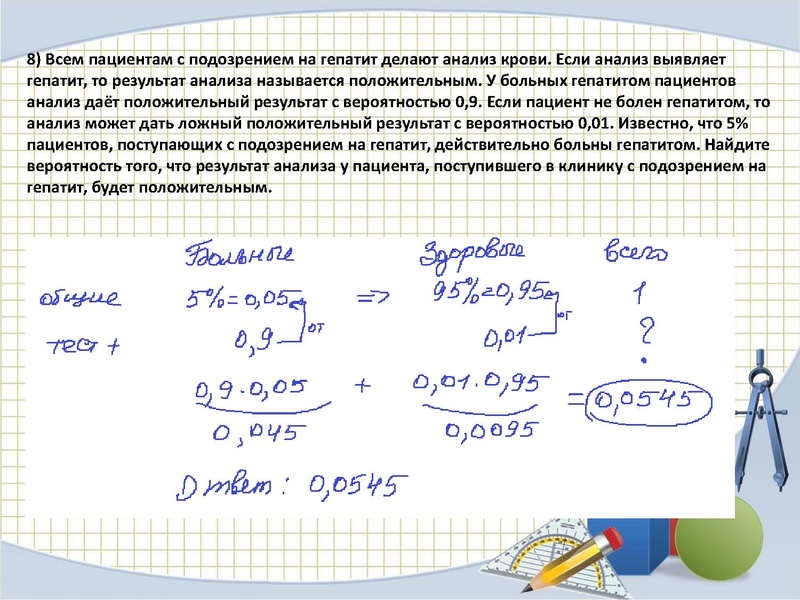 8) Всем пациентам с подозрением на гепатит делают анализ крови. Если анализ выявляет
гепатит, то результат анализа называется положительным. У больных гепатитом пациентов
анализ даёт положительный результат с вероятностью 0,9. Если пациент не болен гепатитом, то
анализ может дать ложный положительный результат с вероятностью 0,01. Известно, что 5%
пациентов, поступающих с подозрением на гепатит, действительно больны гепатитом. Найдите
вероятность того, что результат анализа у пациента, поступившего в клинику с подозрением на
гепатит, будет положительным.
Больные Здоровые всего
общие 5%=0,05 => 95%=0,95 1
от от
тест + 0,9 0,01 ?
0,9·0,05 + 0,01·0,95 = 0,0545
0,045 0,0095
Ответ: 0,0545